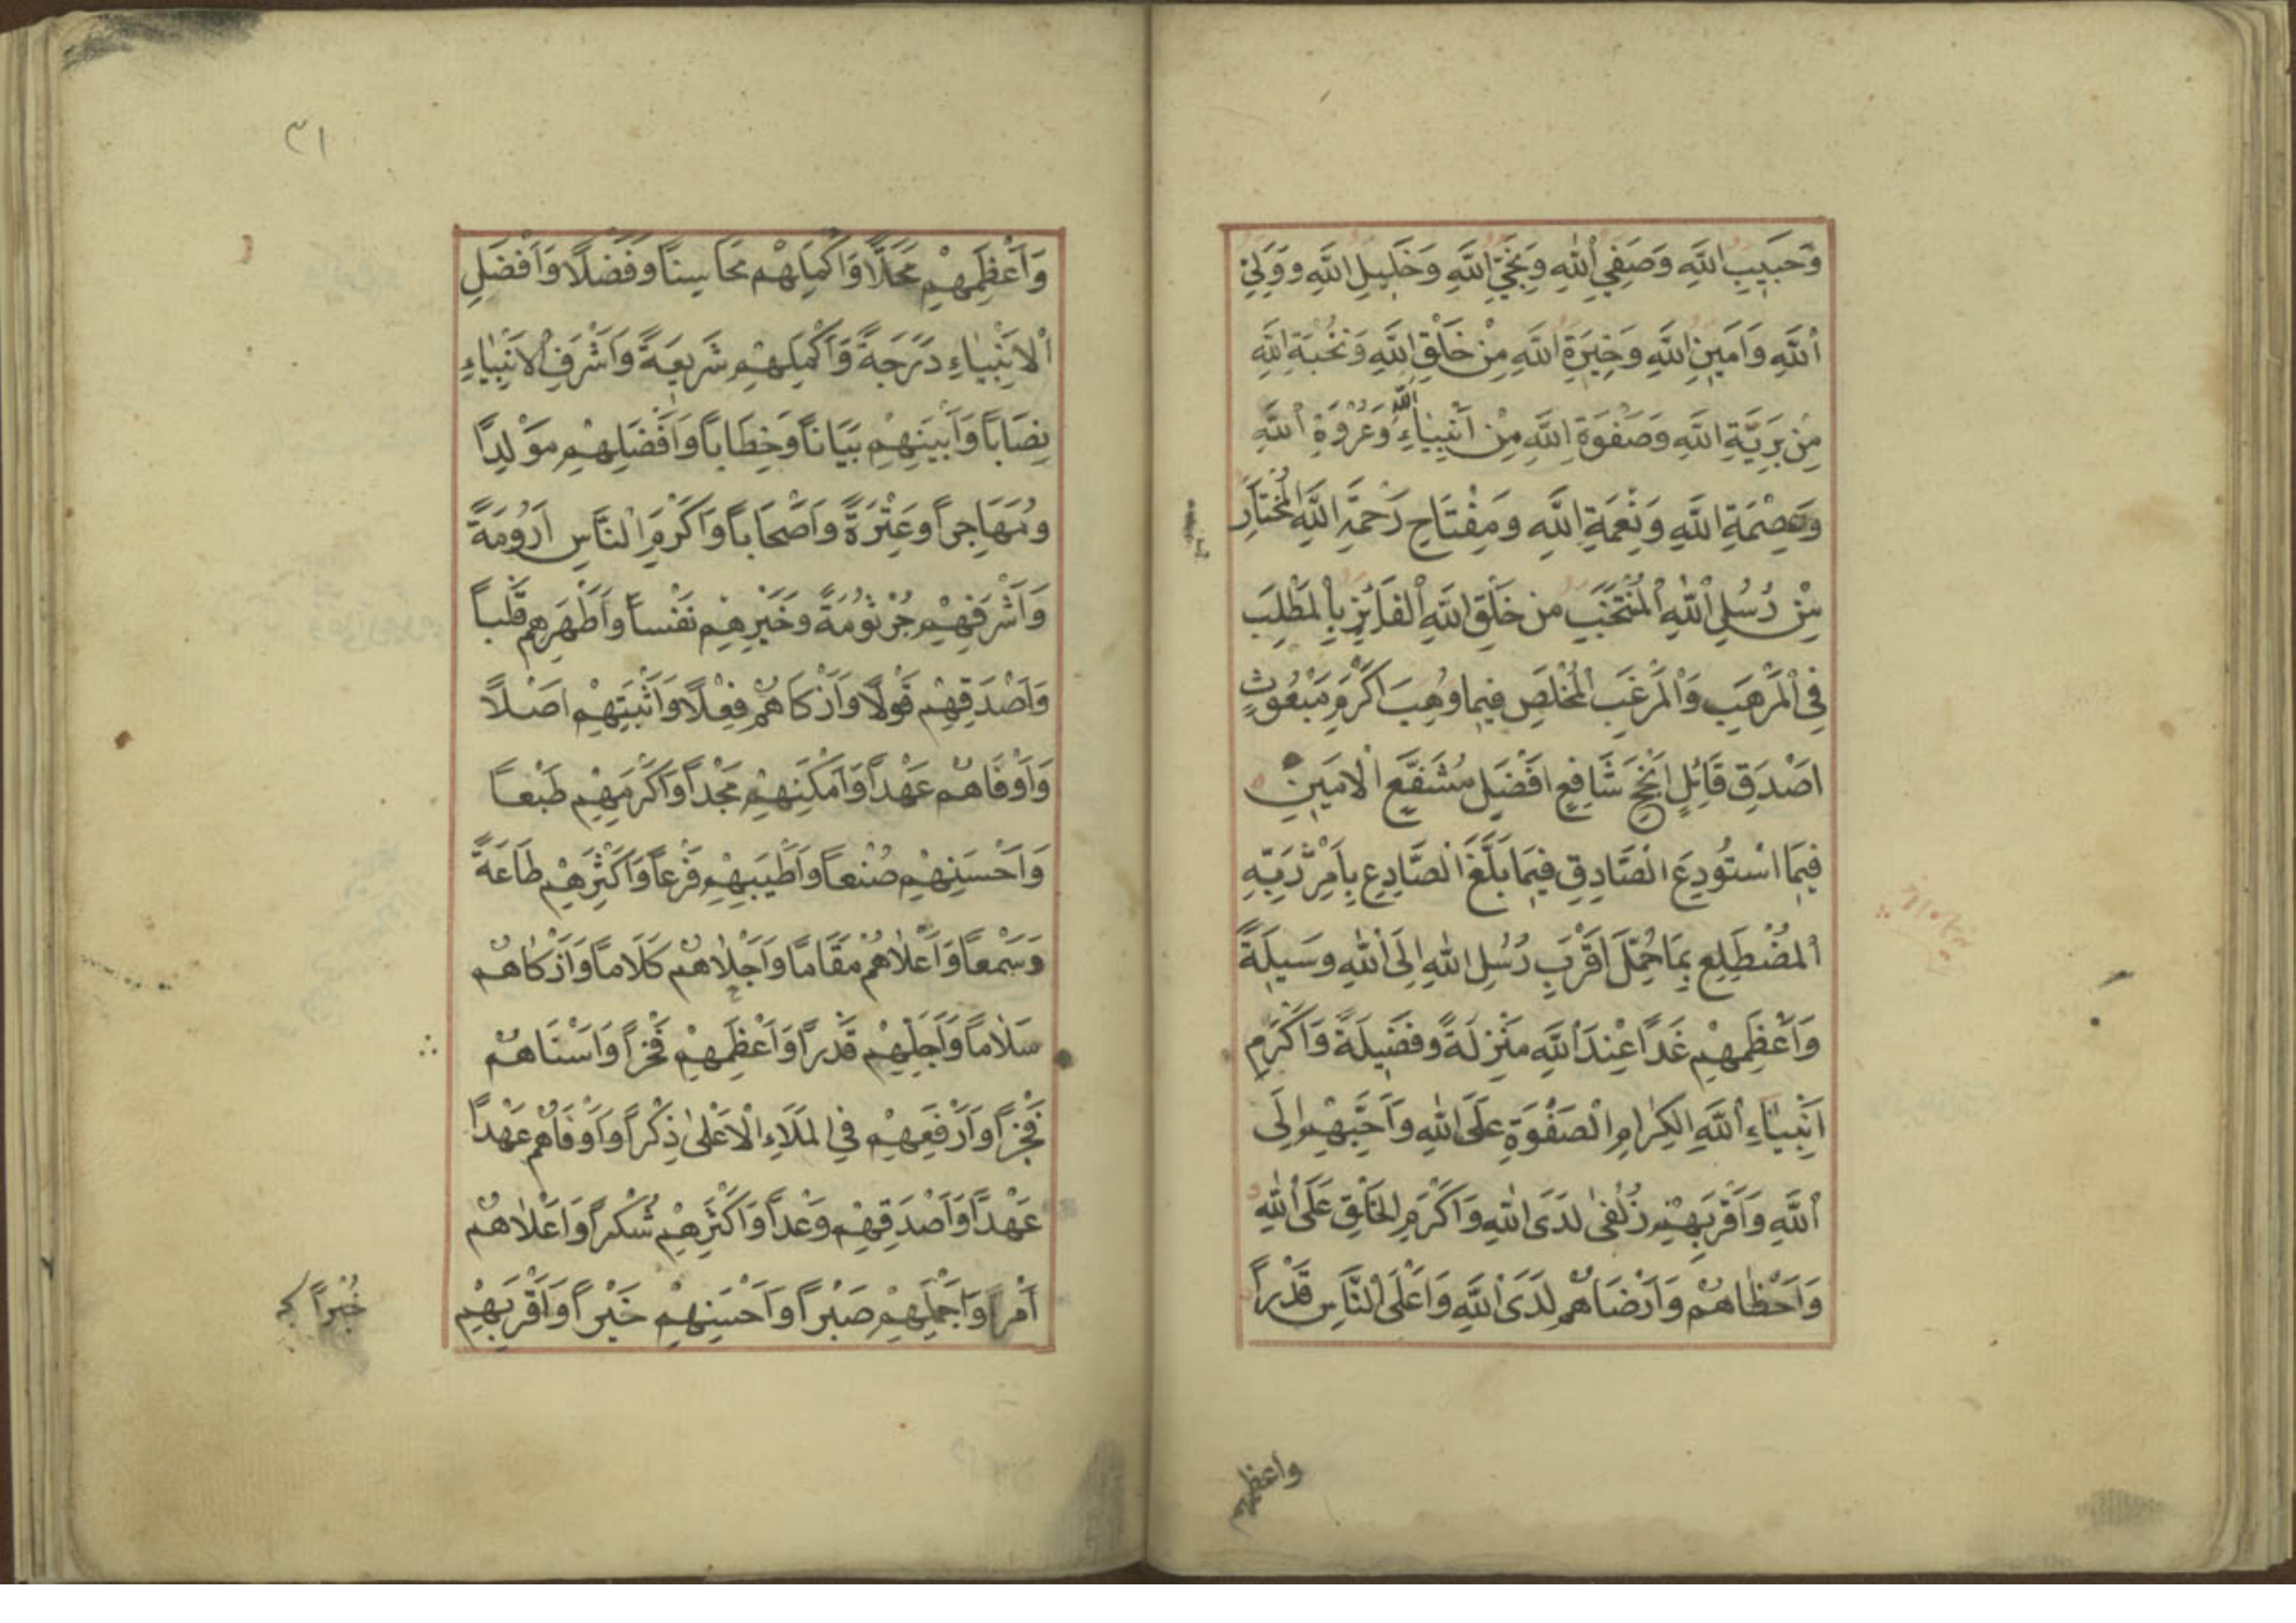 وَحَبِيبِ اللَّهِ وَصَفِيِّ اللَّهِ وَنَجِيِّ اللَّهِ وَخَلِيلِ اللَّهِ وَوَلِيِّ
اللَّهِ وَاَمِينِ اللَّهِ وَخِيَرَةِ اللَّهِ مِنْ خَلْقِ اللَّهِ وَنُخْبَةِ اللَّهِ
مِنْ بَرِيَّةِ اللَّهِ وَصَفْوَةِ اللَّهِ مِنْ اَنْبِيَاءِ اللَّهِ وَعُرْوَةِ اللَّهِ
وَعِصْمَةِ اللَّهِ وَنِعْمَةِ اللَّهِ وَمِفْتَاحِ رَحْمَةِ اللَّهِ الْمُخْتَارِ
مِنْ رُسُلِ اللَّهِ الْمُنْتَخَبِ مِنْ خَلْقِ اللَّهِ الْفَائِزِ بِالْمَطْلَبِ
فِي الْمَرْهَبِ وَالْمَرْغَبِ الْمُخْلَصِ فِيمَا وُهِبَ اَكْرَمِ مَبْعُوثٍ
اَصْدَقِ قَائِلٍ اَنْجَحِ شَافِعٍ اَفْضَلِ مُشَفَّعٍ الْاَمِينِ
فِيمَا اسْتُودِعَ الصَّادِقِ فِيمَا بَلَّغَ الصَّادِعِ بِاَمْرِ رَبِّهِ
الْمُضْطَلِعِ بِمَا حُمِّلَ اَقْرَبِ رُسُلِ اللَّهِ اِلَى اللَّهِ وَسِيلَةً
وَاَعْظَمِهِمْ غَدًا عِنْدَ اللَّهِ مَنْزِلَةً وَفَضِيلَةً وَاَكْرَمِ
اَنْبِيَاءِ اللَّهِ الْكِرَامِ الصَّفْوَةِ عَلَى اللَّهِ وَاَحَبِّهِمْ اِلَى
اللَّهِ وَاَقْرَبِهِمْ زُلْفَى لَدَى اللَّهِ وَاَكْرَمِ الْخَلْقِ عَلَى اللَّهِ
وَاَحْظَاهُمْ وَاَرْضَاهُمْ لَدَى اللَّهِ وَاَعْلَى النَّاسِ قَدْرًا
واعظمهم
٣١
وَاَعْظَمِهِمْ مَحَلًّا وَاَكْمَلِهِمْ مَحَاسِنًا وَفَضْلًا وَاَفْضَلِ
الْاَنْبِيَاءِ دَرَجَةً وَاَكْمَلِهِمْ شَرِيعَةً وَاَشْرَفِ الْاَنْبِيَاءِ
نِصَابًا وَاَبْيَنِهِمْ بَيَانًا وَخِطَابًا وَاَفْضَلِهِمْ مَوْلِدًا
وَمُهَاجَرًا وَعِتْرَةً وَاَصْحَابًا وَاَكْرَمِ النَّاسِ اَرُومَةً
وَاَشْرَفِهِمْ جُرْثُومَةً وَخَيْرِهِمْ نَفْسًا وَاَطْهَرِهِمْ قَلْبًا
وَاَصْدَقِهِمْ قَوْلًا وَاَزْكَاهُمْ فِعْلًا وَاَثْبَتِهِمْ اَصْلًا
وَاَوْفَاهُمْ عَهْدًا وَاَمْكَنِهِمْ مَجْدًا وَاَكْرَمِهِمْ طَبْعًا
وَاَحْسَنِهِمْ صُنْعًا وَاَطْيَبِهِمْ فَرْعًا وَاَكْثَرِهِمْ طَاعَةً
وَسَمْعًا وَاَعْلَاهُمْ مَقَامًا وَاَحْلَاهُمْ كَلَامًا وَاَزْكَاهُمْ
سَلَامًا وَاَجَلِّهِمْ قَدْرًا وَاَعْظَمِهِمْ فَخْرًا وَاَسْنَاهُمْ
فَخْرًا وَاَرْفَعِهِمْ فِي الْمَلَاءِ الْاَعْلَى ذِكْرًا وَاَوْفَاهُمْ عَهْدًا
عَهْدًا وَاَصْدَقِهِمْ وَعْدًا وَاَكْثَرِهِمْ شُكْرًا وَاَعْلَاهُمْ
اَمْرًا وَاَجْمَلِهِمْ صَبْرًا وَاَحْسَنِهِمْ خَيْرًا وَاَقْرَبِهِمْ